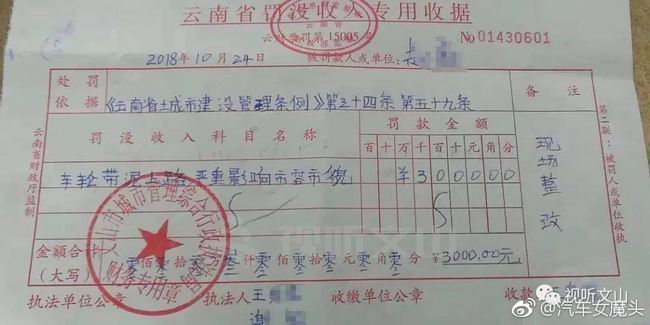 云南省罚没收入专用收据
云南省罚第15005号
No 01430601
2018年10月24日 被罚款人或单位:
处罚依据 《云南省城市建设管理条例》第三十四条 第五十九条 备注
罚没收入科目名称 罚款金额
百 十 万 千 百 十 元 角 分
车轮带泥上路 严重影响市容市貌 ¥ 3 0 0 0 0 0 现场整改
金额合计(大写) 零佰零拾零万叁仟零佰零拾零元零角零分 ¥3000.00元
执法单位公章 执法人 王 收缴单位公章 收款
云南省财政厅监制
第二联:被罚人或单位收执
文山市城市管理综合行政执法局
财务专用章
视听文山
视听文山
@汽车女魔头